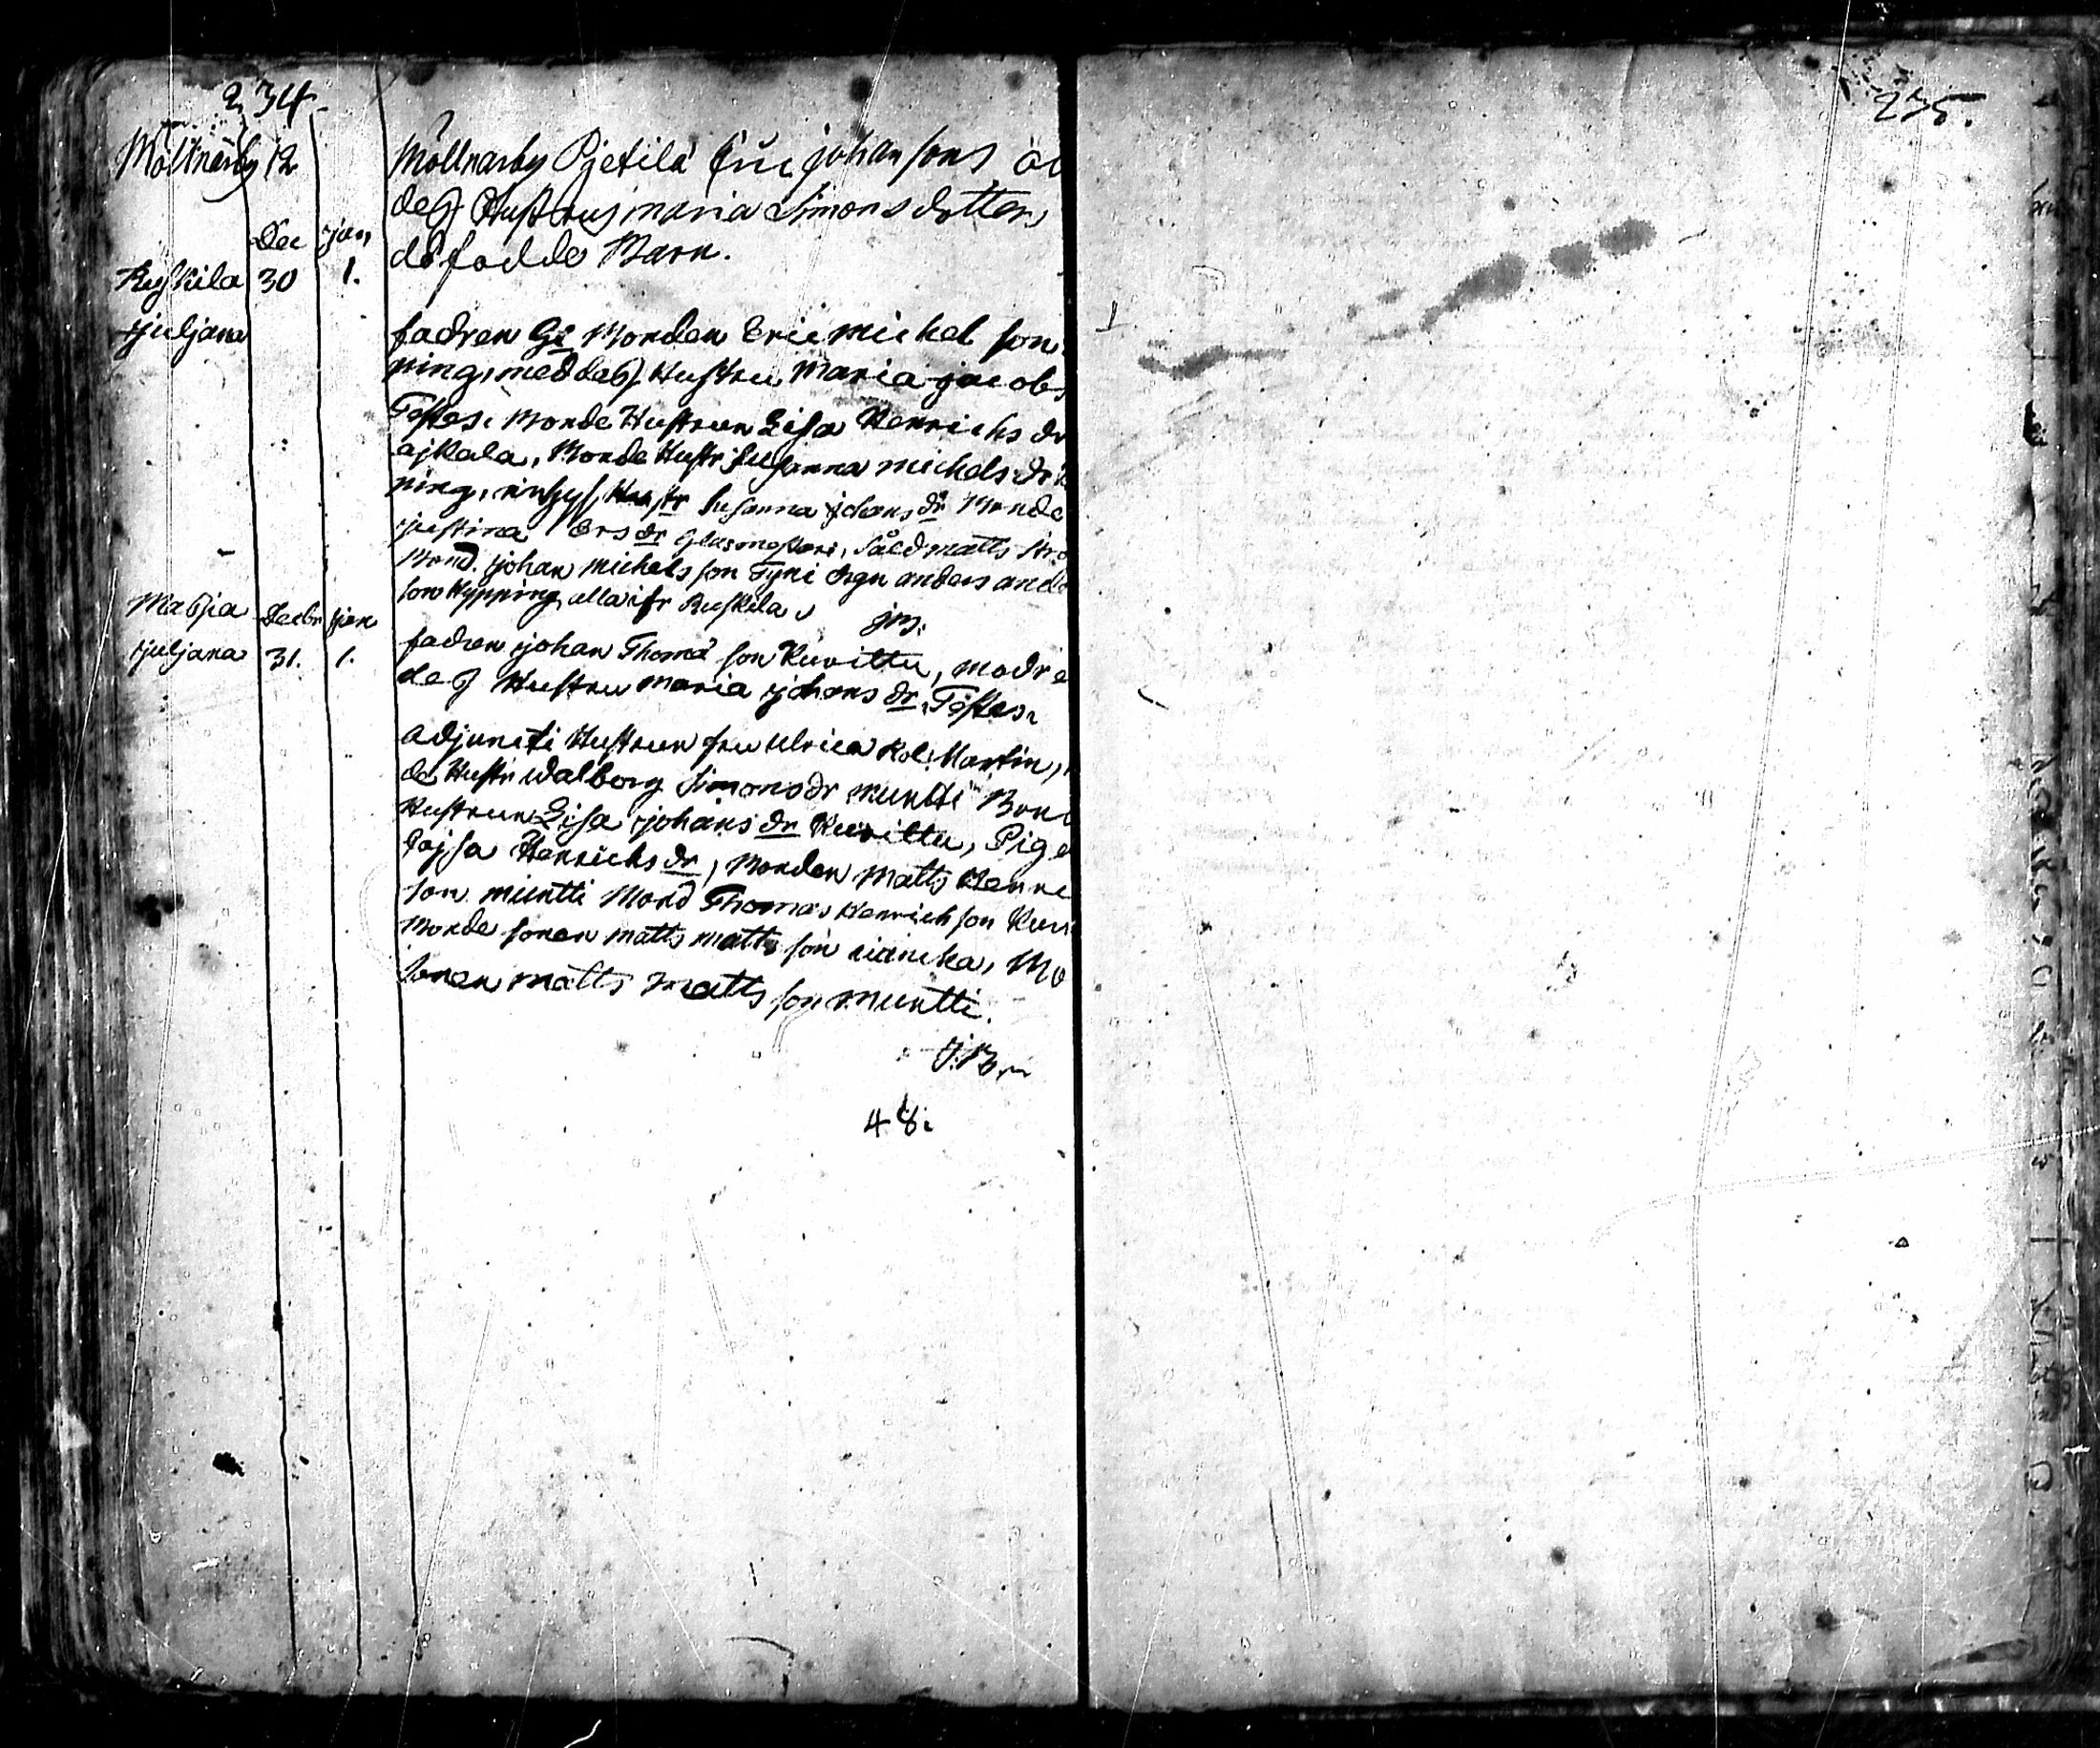 234.
Möllnärby 12
Möllnarby Pjetilä Eric johan sons
des Hustrus maria Simons dotters
döfödde Barn.
Dec jan
Ruskila 30 1.
juljana
fadren Gl Bonden Eric michel son
ping, med des Hustru Maria jacobs
Testes: Bonde Hustrun Lisa Henrichs dr
ajkala, Bonde Hustr Susanna michels dr
ping, Hustr Susanna johans dr Bonde
justina Ers dr Glasmestari, Såld matts
Bond. johan michels son Tyni drgn anders and
son Hypping alla ifr Ruskila
Maßia Decbr jan
juljana 31. 1.
fadren johan Thomä son Kurittu, modre
des Hustru maria johans dr. Testes:
adjuncti Hustrun fru Ulrica Kol. Martin,
de Hustr Walborg Simons dr muntti Bon
Hustrun Lisa johans dr Kurittu, Pig
Cajsa Henrichs dr, Bonden Matts Henri
son muntti Bond Thomas Henrich son Kuri
Bonde sonen matts matts son
sonen matts matts son muntti.
J.B.
48.
235.